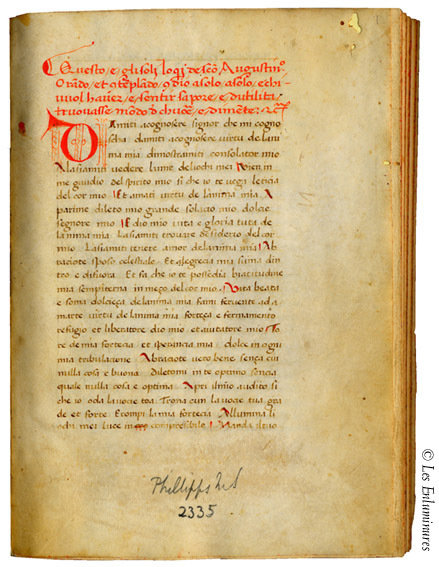 Questo e gli soli loqi de scō Augustino
Orādo, et ɔtēplādo ɔ dio a solo a solo, e chi
vuol haver, e sentir sapore, e dutilita
truovasse
DAmiti a cognosere signor che mi cogno
scha, damiti a cognosere virtu de lani
ma mia dimostramiti, consolator mio
A lasiamiti vedere, lume deliochi mei, Vien in
me gaudio del spirito mio si che io te vegi leticia
del cor mio. Et amati virtu de lanima mia. A
parime dileto mio grande solacio mio dolce
segnore mio. E dio mio vita e gloria tuta de
lanima mia. Lasiamiti trovare desiderio del cor
mio. Lasiamiti tenere amor de lanima mia. Ab
raciote sposo celestiale. Et alegrecia mia suma din
tro e difuora. Et fa che io te possedia biatitudine
mia sempiterna in mego del cor mio. Vita beata
e soma dolceça de lanima mia. Fami fervente ad a
marte virtu de lanima mia forteça e fermamento
refugio et liberatore dio mio et aiutatore mio. To
re de mia fortecia et sperancia mia dolce in ogni
mia tribulacione. Abraciote vero bene sença cui
nulla cosa e buona. Diletomi in te optimo sencia
quale nulla cosa e optima. Apri ilmio audito si
che io oda la vocie toa. Trona cun la vocie tua gra
de et forte. Et compi la mia fortecia. Allumina li
ochi mei luce in compressibile. Manda il tuo
Phillipps MS
2335
© Les Enluminures